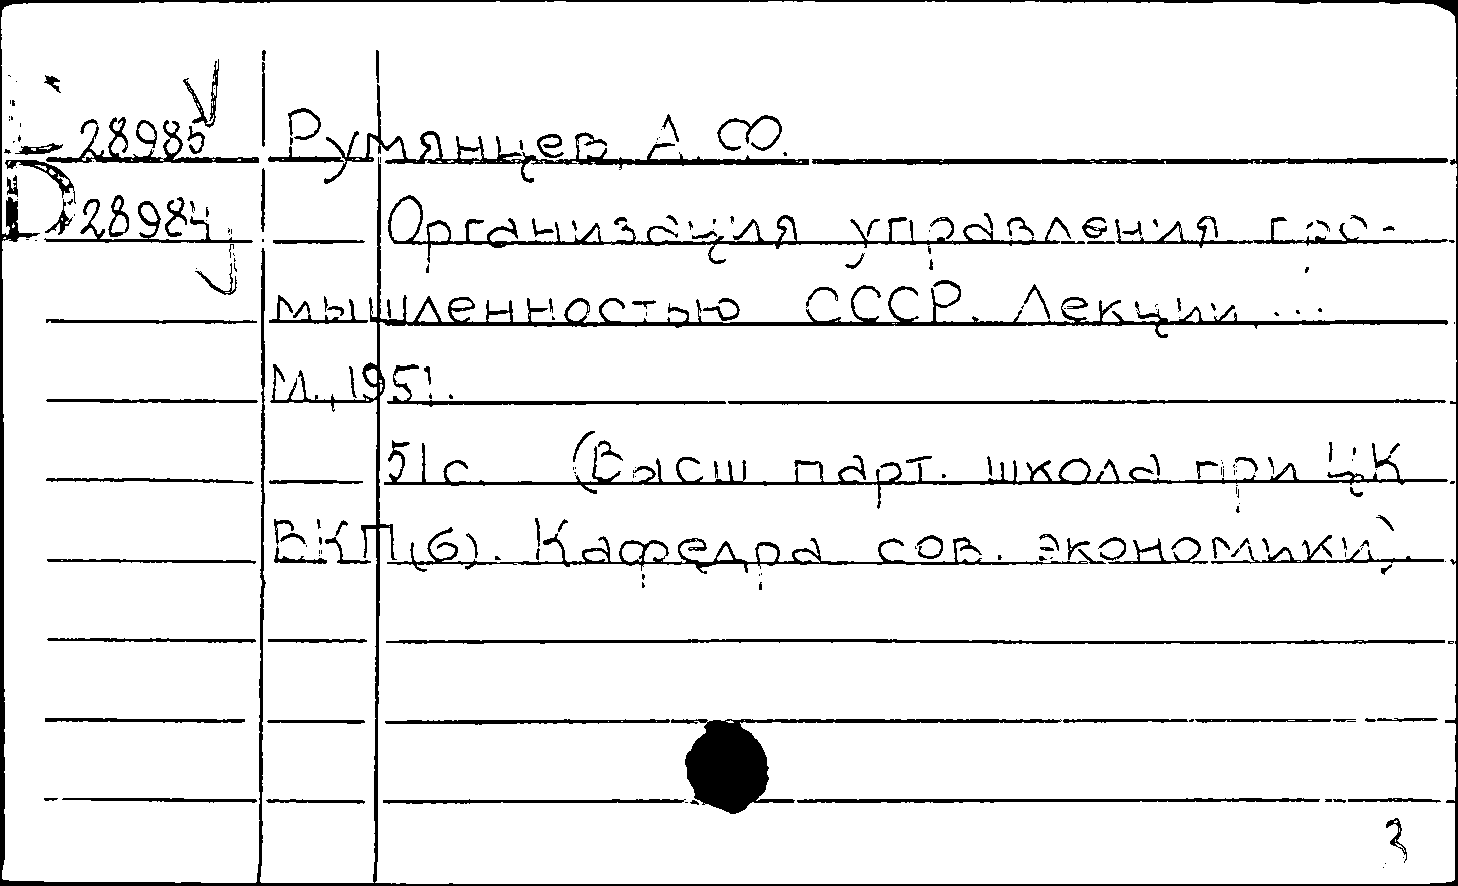 28985 Румянцев, А. Ф.
28984 Организация управления про-
мышленностью СССР. Лекции ...
М., 1951.
51 с. (Высш. парт. школа при ЦК
ВКП(б). Кафедра сов. экономики).
3